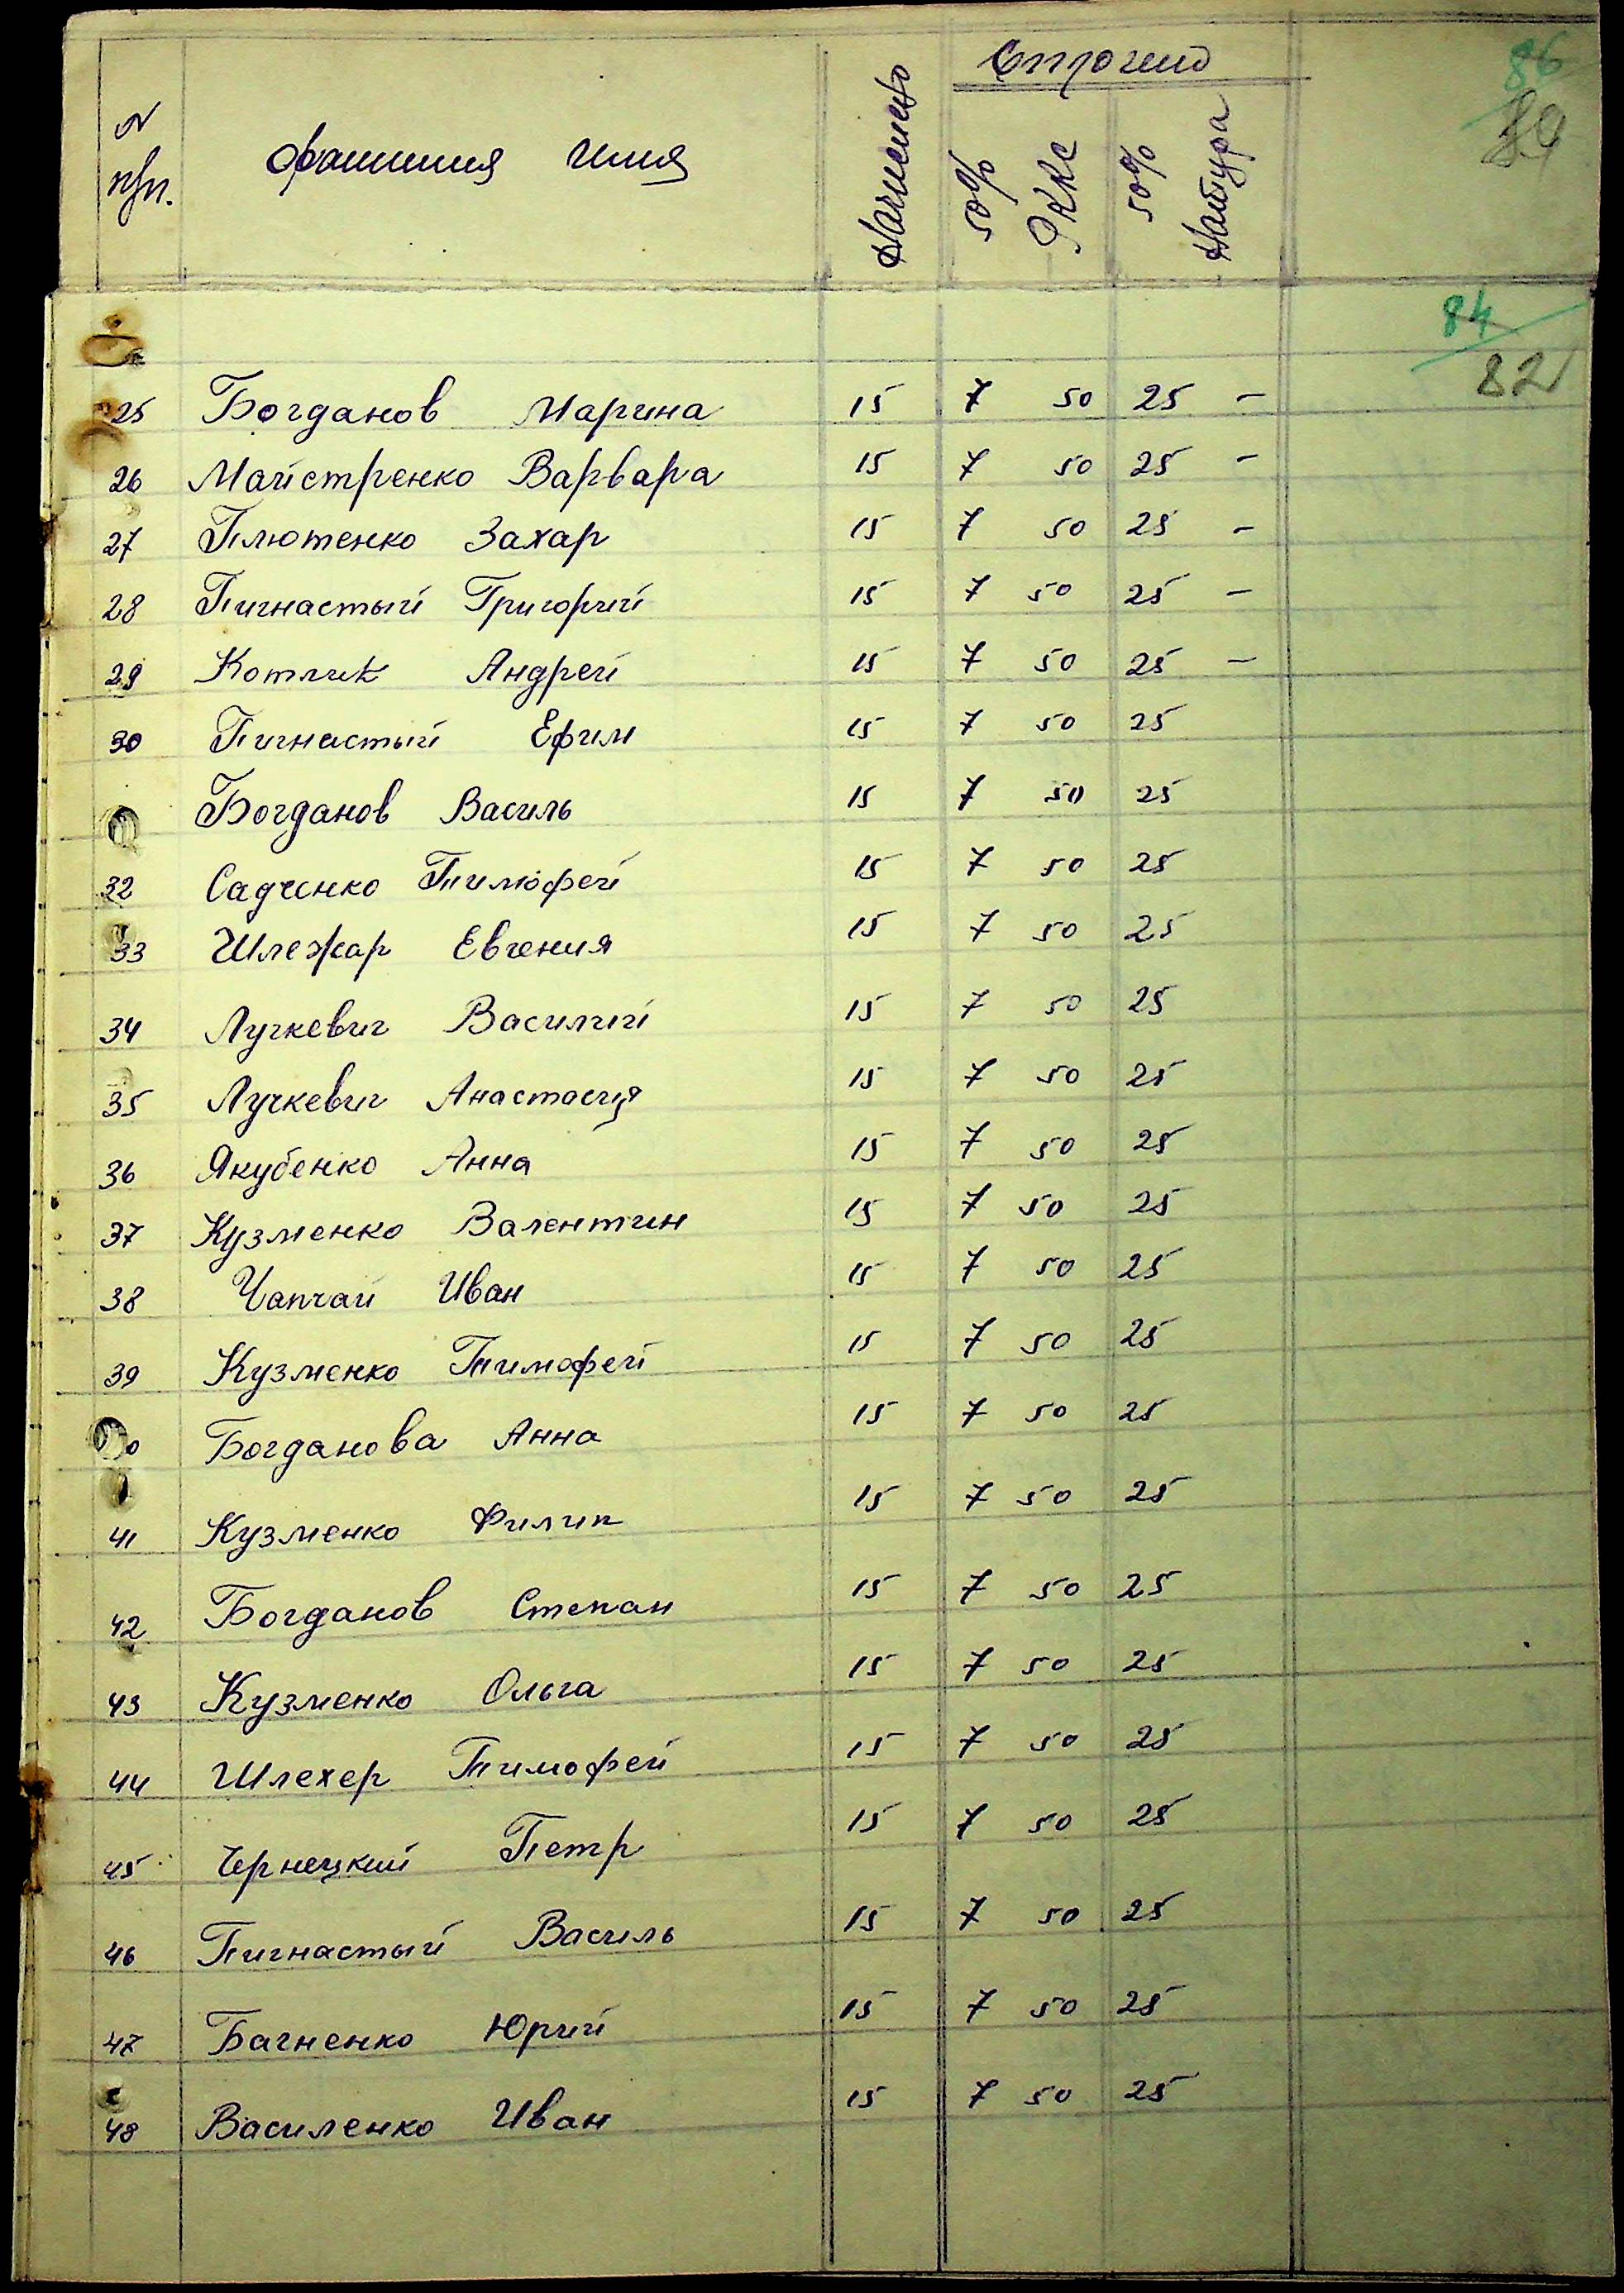 Строчено
86
84
N п/п.
Фамилия Имя
Начислено
50% РККС
50% Натура
84
82
25 Богданов Марина 15 7 50 25 -
26 Майстренко Варвара 15 7 50 25 -
27 Плютенко Захар 15 7 50 25 -
28 Пигнастый Григорий 15 7 50 25 -
29 Котлик Андрей 15 7 50 25 -
30 Пигнастый Ефим 15 7 50 25
Богданов Василь 15 7 50 25
32 Садченко Тимофей 15 7 50 25
33 Шлежар Евгения 15 7 50 25
34 Лучкевич Василий 15 7 50 25
35 Лучкевич Анастасия 15 7 50 25
36 Якубенко Анна 15 7 50 25
37 Кузменко Валентин 15 7 50 25
38 Чапчай Иван 15 7 50 25
39 Кузменко Тимофей 15 7 50 25
0 Богданова Анна 15 7 50 25
41 Кузменко Филип 15 7 50 25
42 Богданов Степан 15 7 50 25
43 Кузменко Ольга 15 7 50 25
44 Шлехер Тимофей 15 7 50 25
45 Чернецкий Петр 15 7 50 25
46 Пигнастый Василь 15 7 50 25
47 Багненко Юрий 15 7 50 25
48 Василенко Иван 15 7 50 25